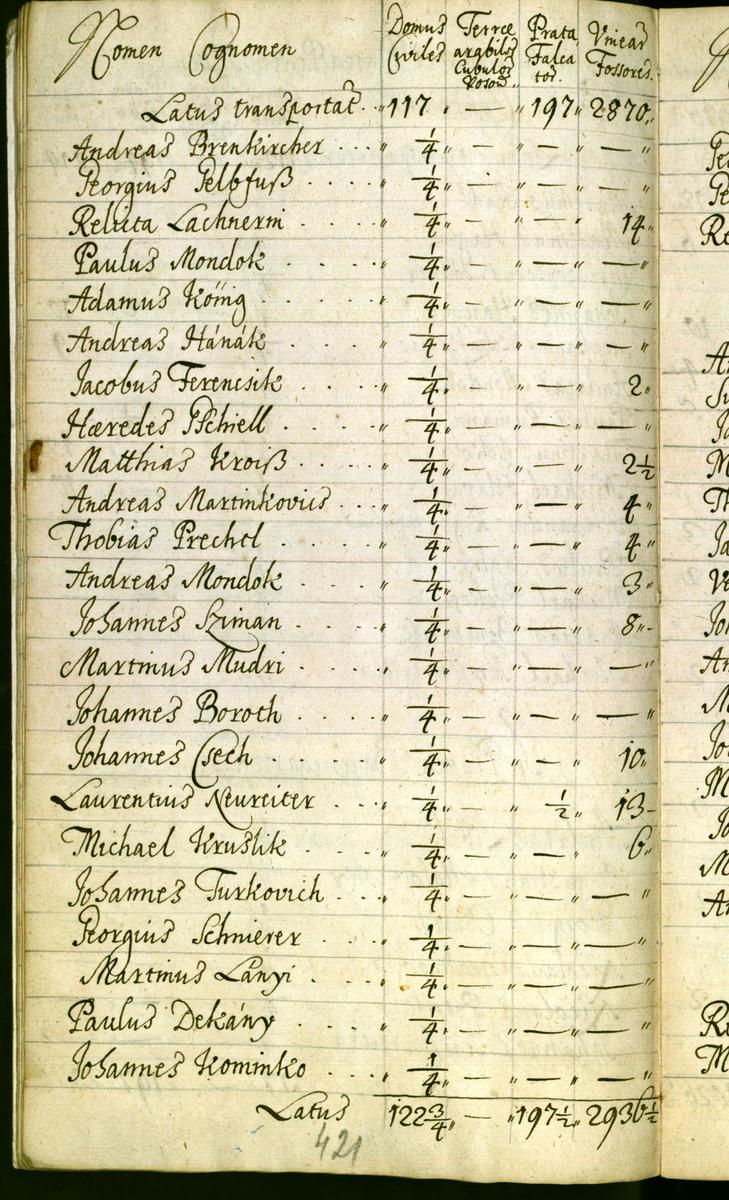 Nomen Cognomen Domus Civiles Terræ arabiles Cubulos Poson. Prata Falcatos. Vineas Fossores.
Latus transportat " 117 " — " 197 " 2870 "
Andreas Brenkircher " 1/4 " — " — " — "
Georgius Gelbfuß " 1/4 " — " — " — "
Relicta Lachnerin " 1/4 " — " — " 14 "
Paulus Mondok " 1/4 " — " — " — "
Adamus König " 1/4 " — " — " — "
Andreas Hánák " 1/4 " — " — " — "
Jacobus Ferencsik " 1/4 " — " — " 2 "
Hæredes Pschiell " 1/4 " — " — " — "
Matthias Kroiß " 1/4 " — " — " 2 1/2
Andreas Martinkovics " 1/4 " — " — " 4 "
Thobias Prechtl " 1/4 " — " — " 4 "
Andreas Mondok " 1/4 " — " — " 3 "
Johannes Sziman " 1/4 " — " — " 8 "
Martinus Mudri " 1/4 " — " — " — "
Johannes Boroth " 1/4 " — " — " — "
Johannes Csech " 1/4 " — " — " 10 "
Laurentius Neureiter " 1/4 " — " 1/2 " 13
Michael Kruslik " 1/4 " — " — " 6 "
Johannes Turkovich " 1/4 " — " — " — "
Georgius Schnierer " 1/4 " — " — " — "
Martinus Lányi " 1/4 " — " — " — "
Paulus Dekány " 1/4 " — " — " — "
Johannes Kominko " 1/4 " — " — " — "
Latus 122 3/4 " — " 197 1/2 " 2936 1/2
421